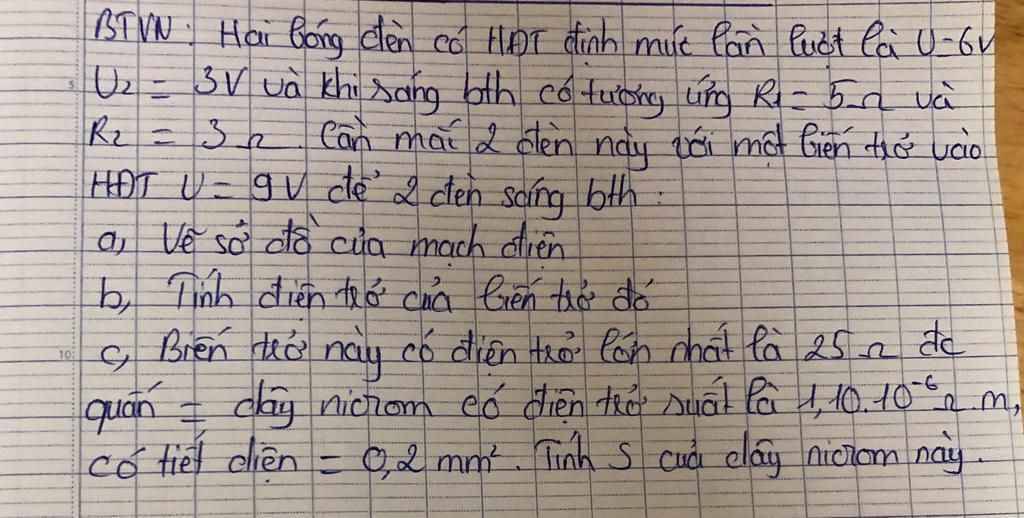 BTVN: Hai bóng đèn có HĐT định mức lần lượt là U=6V
U2 = 3V và khi sáng bth có tương ứng R1 = 5Ω và
R2 = 3Ω. Cần mắc 2 đèn này với một biến trở vào
HĐT U = 9V để 2 đèn sáng bth:
a, Vẽ sơ đồ của mạch điện
b, Tính điện trở của biến trở đó
c, Biến trở này có điện trở lớn nhất là 25Ω đc
quấn = dây nicrom có điện trở suất là 1,10.10⁻⁶Ω.m,
có tiết diện = 0,2 mm². Tính S của dây nicrom này.